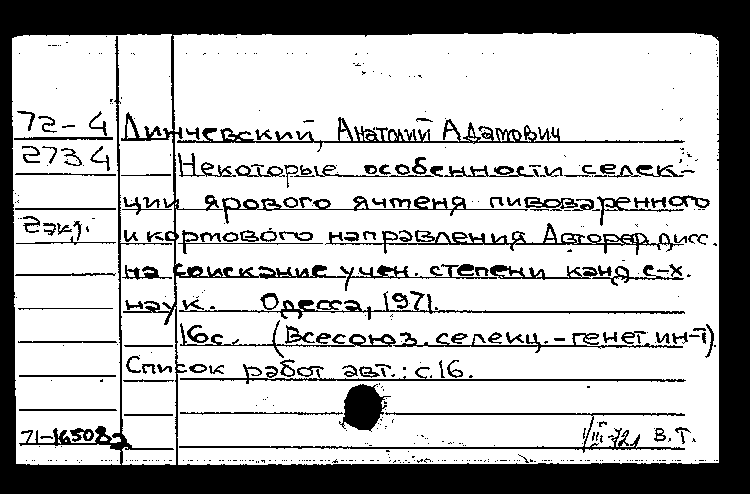 72-4 Линчевский, Анатолий Адамович
2734 Некоторые особенности селек-
ции ярового ячменя пивоваренного
2 экз. и кормового направления Автореф. дисс.
на соискание учен. степени канд с-х.
наук. Одесса, 1971.
16с. (Всесоюз. селекц.-генет. ин-т)
Список работ авт.: с.16.
71-16508a 1/III-72 В.Т.